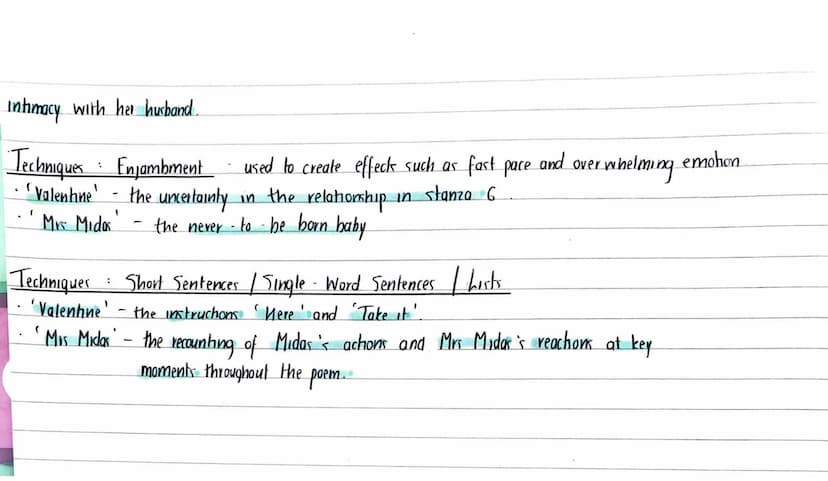 intimacy with her husband.
Techniques : Enjambment - used to create effects such as fast pace and overwhelming emotion
· 'Valentine' - the uncertainty in the relationship in stanza 6.
· 'Mrs Midas' - the never-to-be born baby
Techniques : Short Sentences / Single-Word Sentences / Lists
· 'Valentine' - the instructions 'Here' and 'Take it'.
· 'Mrs Midas' - the recounting of Midas's actions and Mrs Midas's reactions at key
moments throughout the poem.